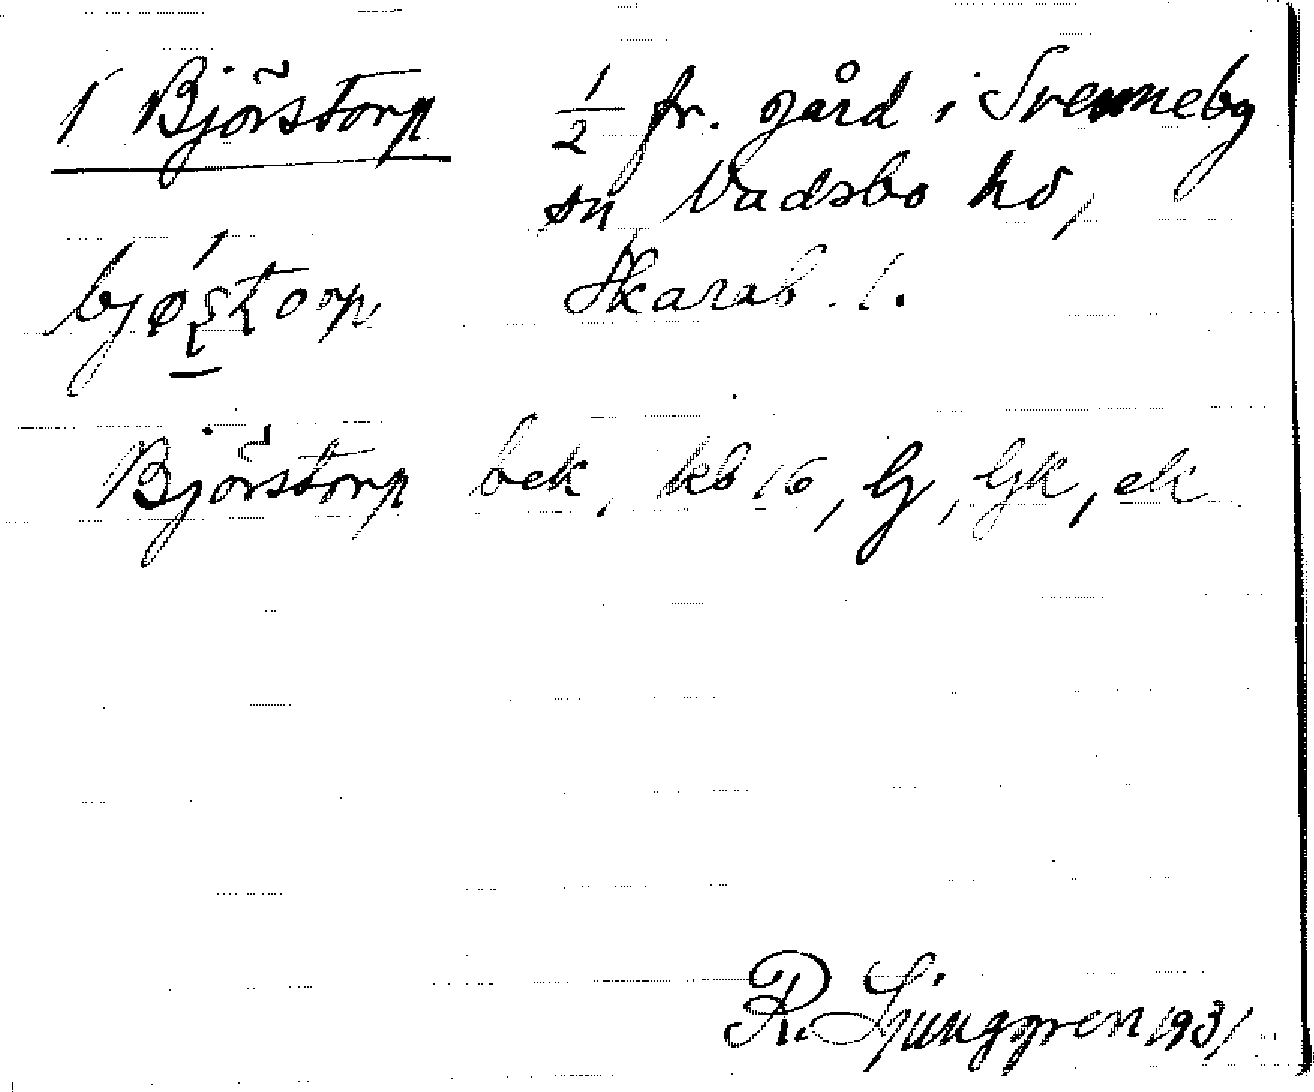 1 Björstorp ½ fr. gård i Svenneby
sn Vadsbo hd,
Skarab. l.
Björstorp bek, kb 16, G, Gk, ek
R. Ljunggren 1931